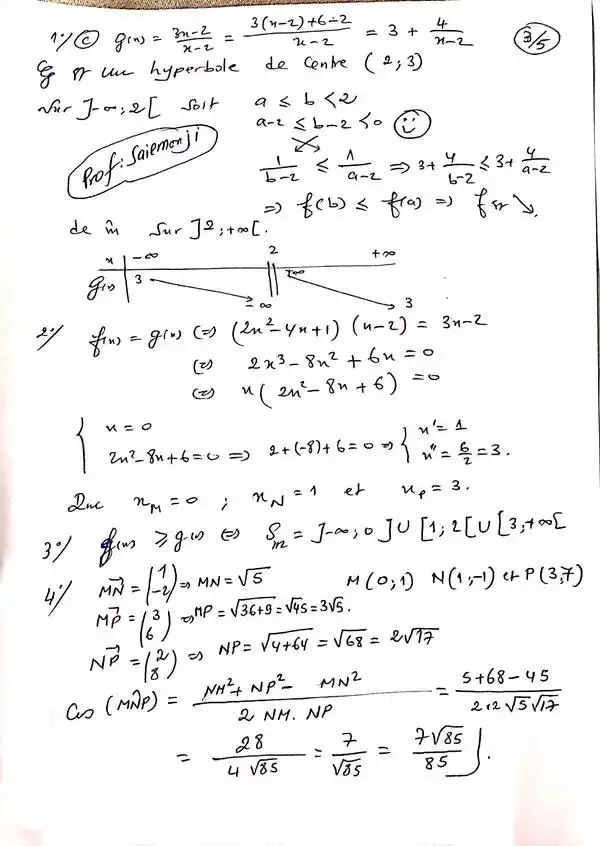 1°/ ⓒ g(x) = 3x-2/x-2 = 3(x-2)+6-2/x-2 = 3 + 4/x-2
3/5
est une hyperbole de centre (2;3)
Sur ]-∞;2[ soit a ≤ b < 2
a-2 ≤ b-2 < 0
Prof: Saiemonji
1/b-2 ≤ 1/a-2 ⇒ 3+4/b-2 ≤ 3+4/a-2
⇒ f(b) ≤ f(a) ⇒ f est ↘
de m̂ sur ]2;+∞[.
x -∞ 2 +∞
g(x) 3 -∞ +∞ 3
2°/ f(x) = g(x) (=) (2x²-4x+1)(x-2) = 3x-2
(=) 2x³-8x²+6x=0
(=) x(2x²-8x+6)=0
{ x=0
2x²-8x+6=0 ⇒ 2+(-8)+6=0 ⇒ { x'=1
x''=6/2=3.
Donc x_M=0 ; x_N=1 et x_P=3.
3°/ f(x) ≥ g(x) ⇔ S_IR = ]-∞;0]U[1;2[U[3;+∞[
4°/ MN→ = (1 -2) ⇒ MN=√5 M(0;1) N(1;-1) et P(3;7)
MP→ = (3 6) ⇒ MP=√36+9=√45=3√5.
NP→ = (2 8) ⇒ NP=√4+64=√68=2√17
Cos(MN̂P) = NM²+NP²- MN²/2 NM.NP = 5+68-45/2×2√5√17
= 28/4√85 = 7/√85 = 7√85/85.